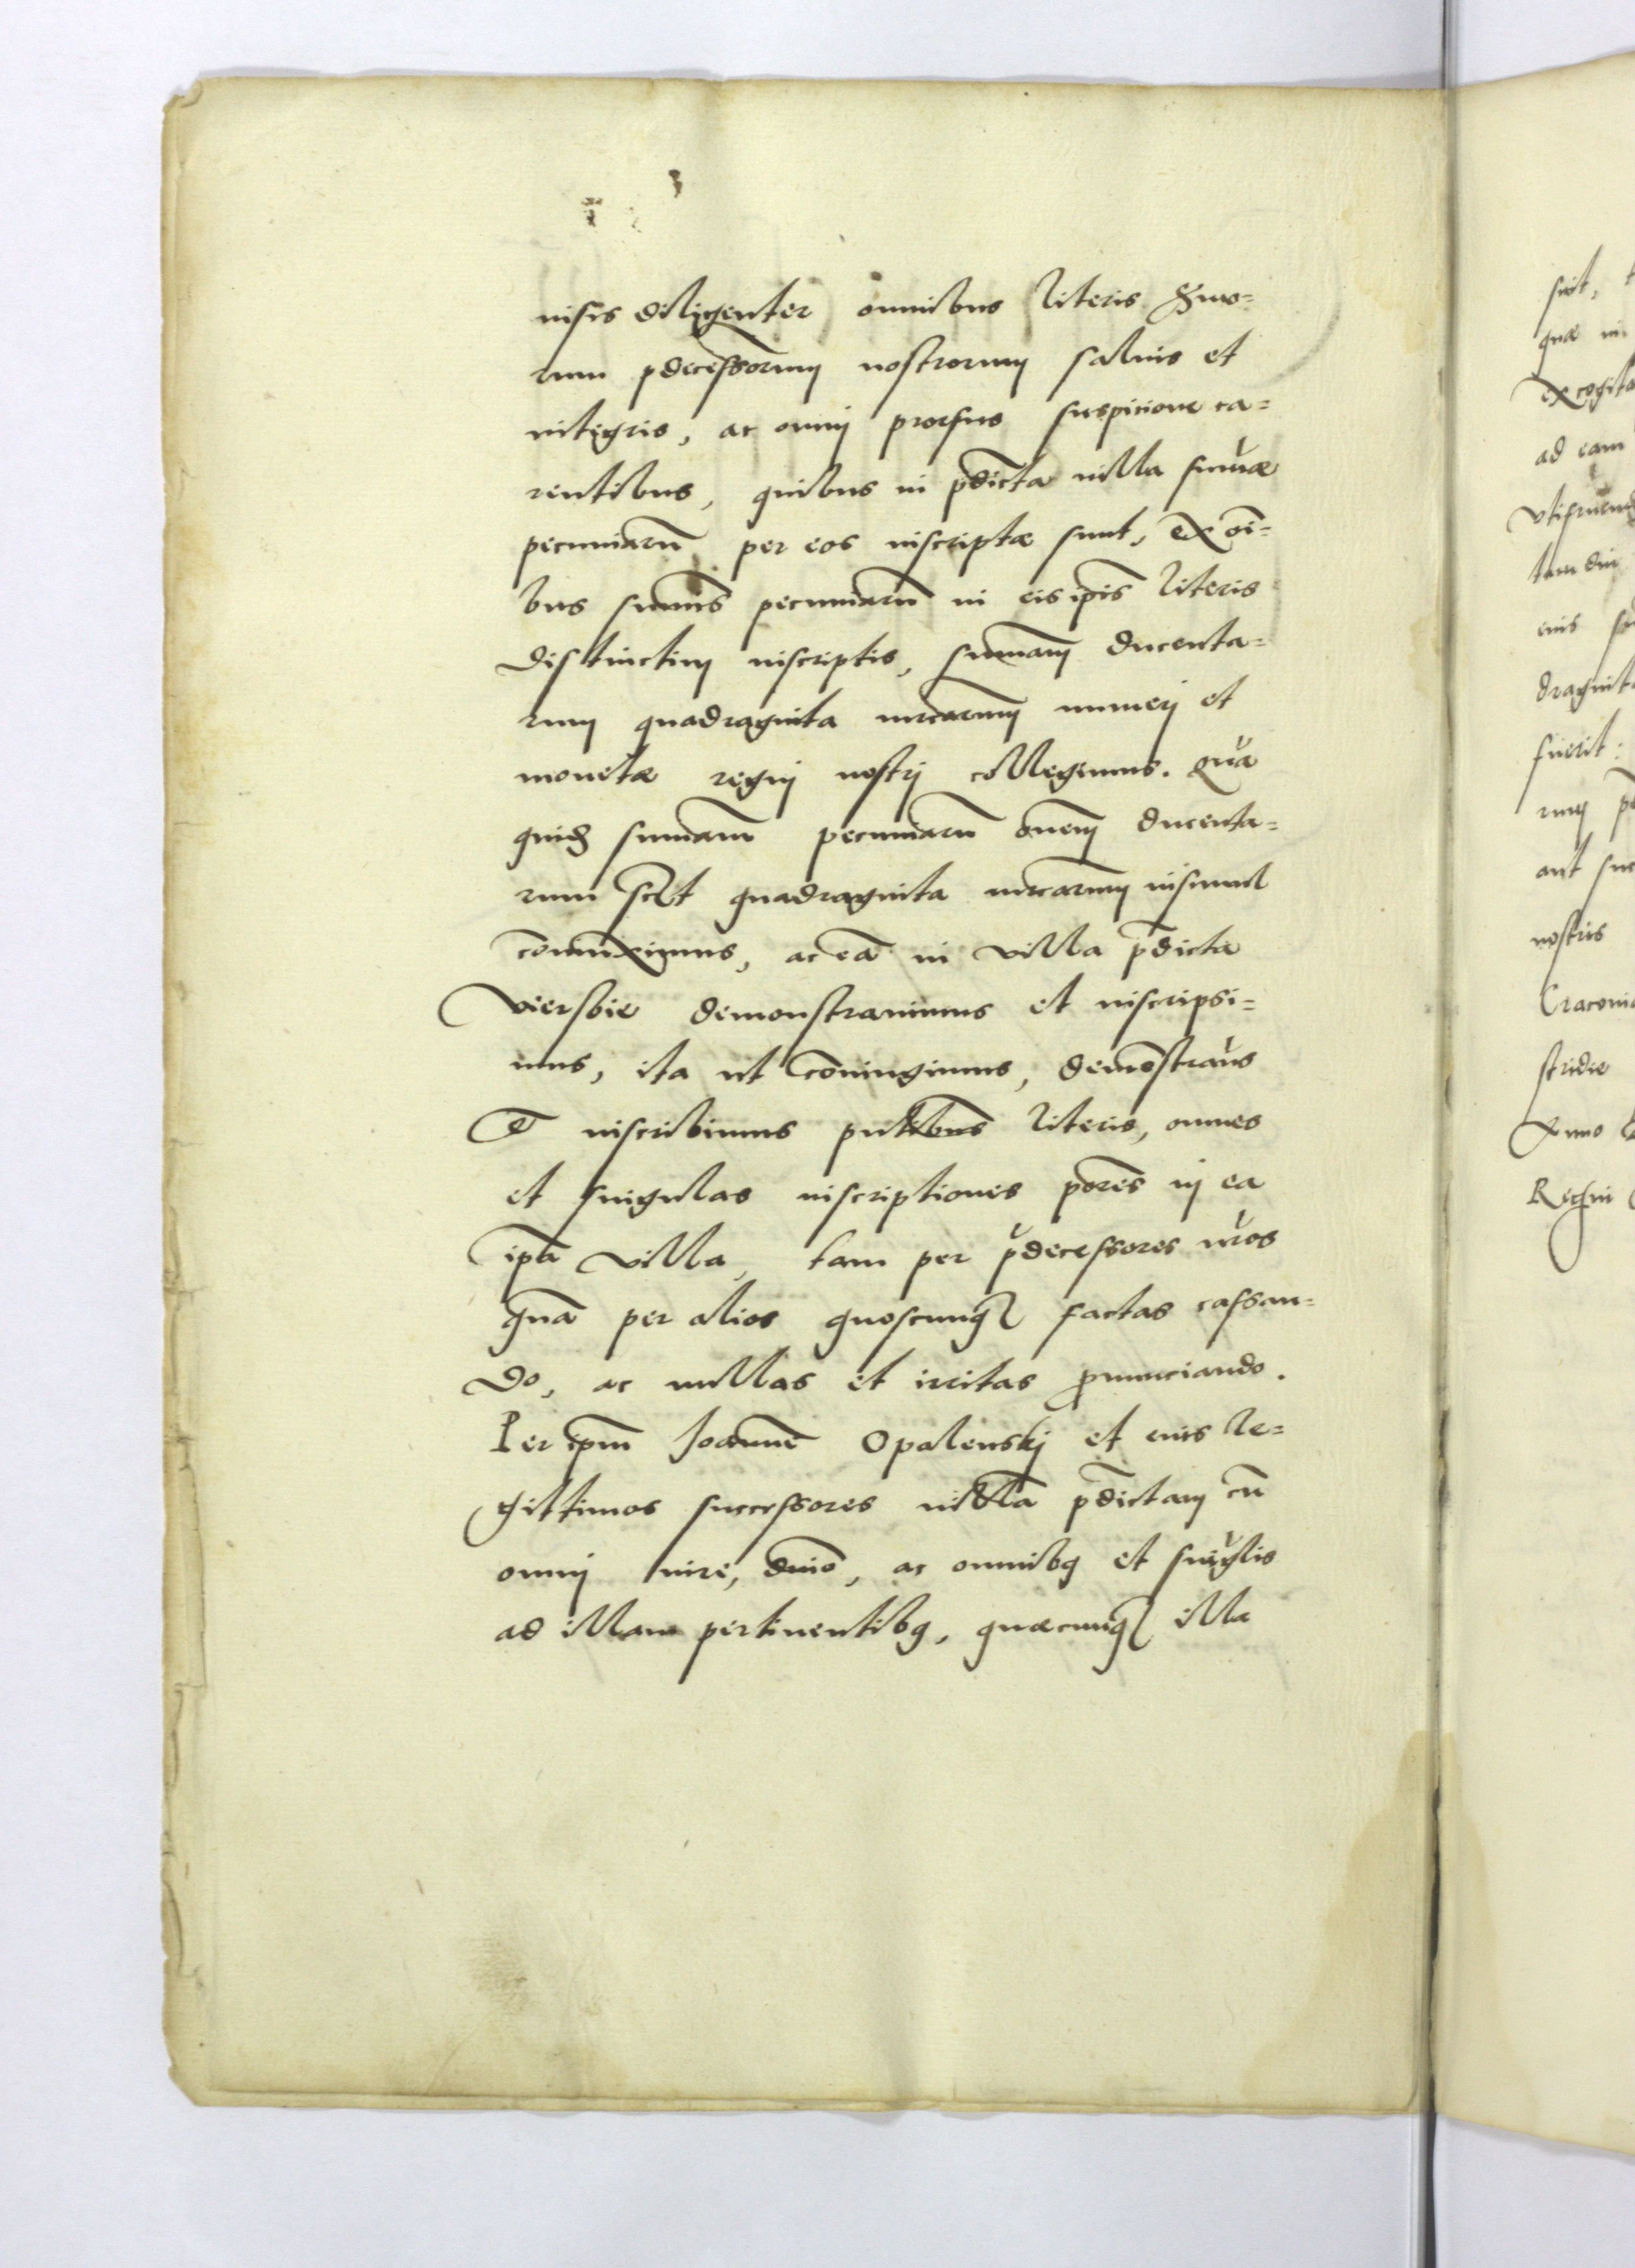 uisis diligenter omnibus literis Sereniss=
rum pdecessorum nostrorum saluis et
integris, ac omnj prorsus suspicione ca=
rentibus, quibus in pdicta uilla sumæ
pecuniarū per eos inscriptæ sunt, ex oī=
bus summs pecuniarū in eis ipīs literis
distinctim inscriptis, sumam ducenta=
rum quadraginta mrcarum numerj et
monetæ regnj nostrj collegimus. Quā
quidē sumam pecuniarū omnem ducenta=
rum sclt quadraginta mrcarum insimul
coniunximus, ac eā in villa pdicta
Viersbie demonstrauimus et inscripsi=
mus, ita ut coniungimus, demonstram̄s
et inscribimus pntibus literis, omnes
et singulas inscriptiones pores in ea
ipā villa, tam per pdecessores nros
quā per alios quoscunq factas cassan=
do, ac nullas et irritas pnunciando.
Per ipm Joannē Opalenskj et eius le=
gittimos successores uillā pdictam cū
omnj iure, dnio, ac omnibq et singlis
ad illam pertinentibq, quæcunq illa
sint,
quæ in
excogita
ad eam
Vtifruend
tam diu
eius
dragint
fuerit:
rum
aut suc
nostris
Cracouiæ
stridie
Anno
Regnj